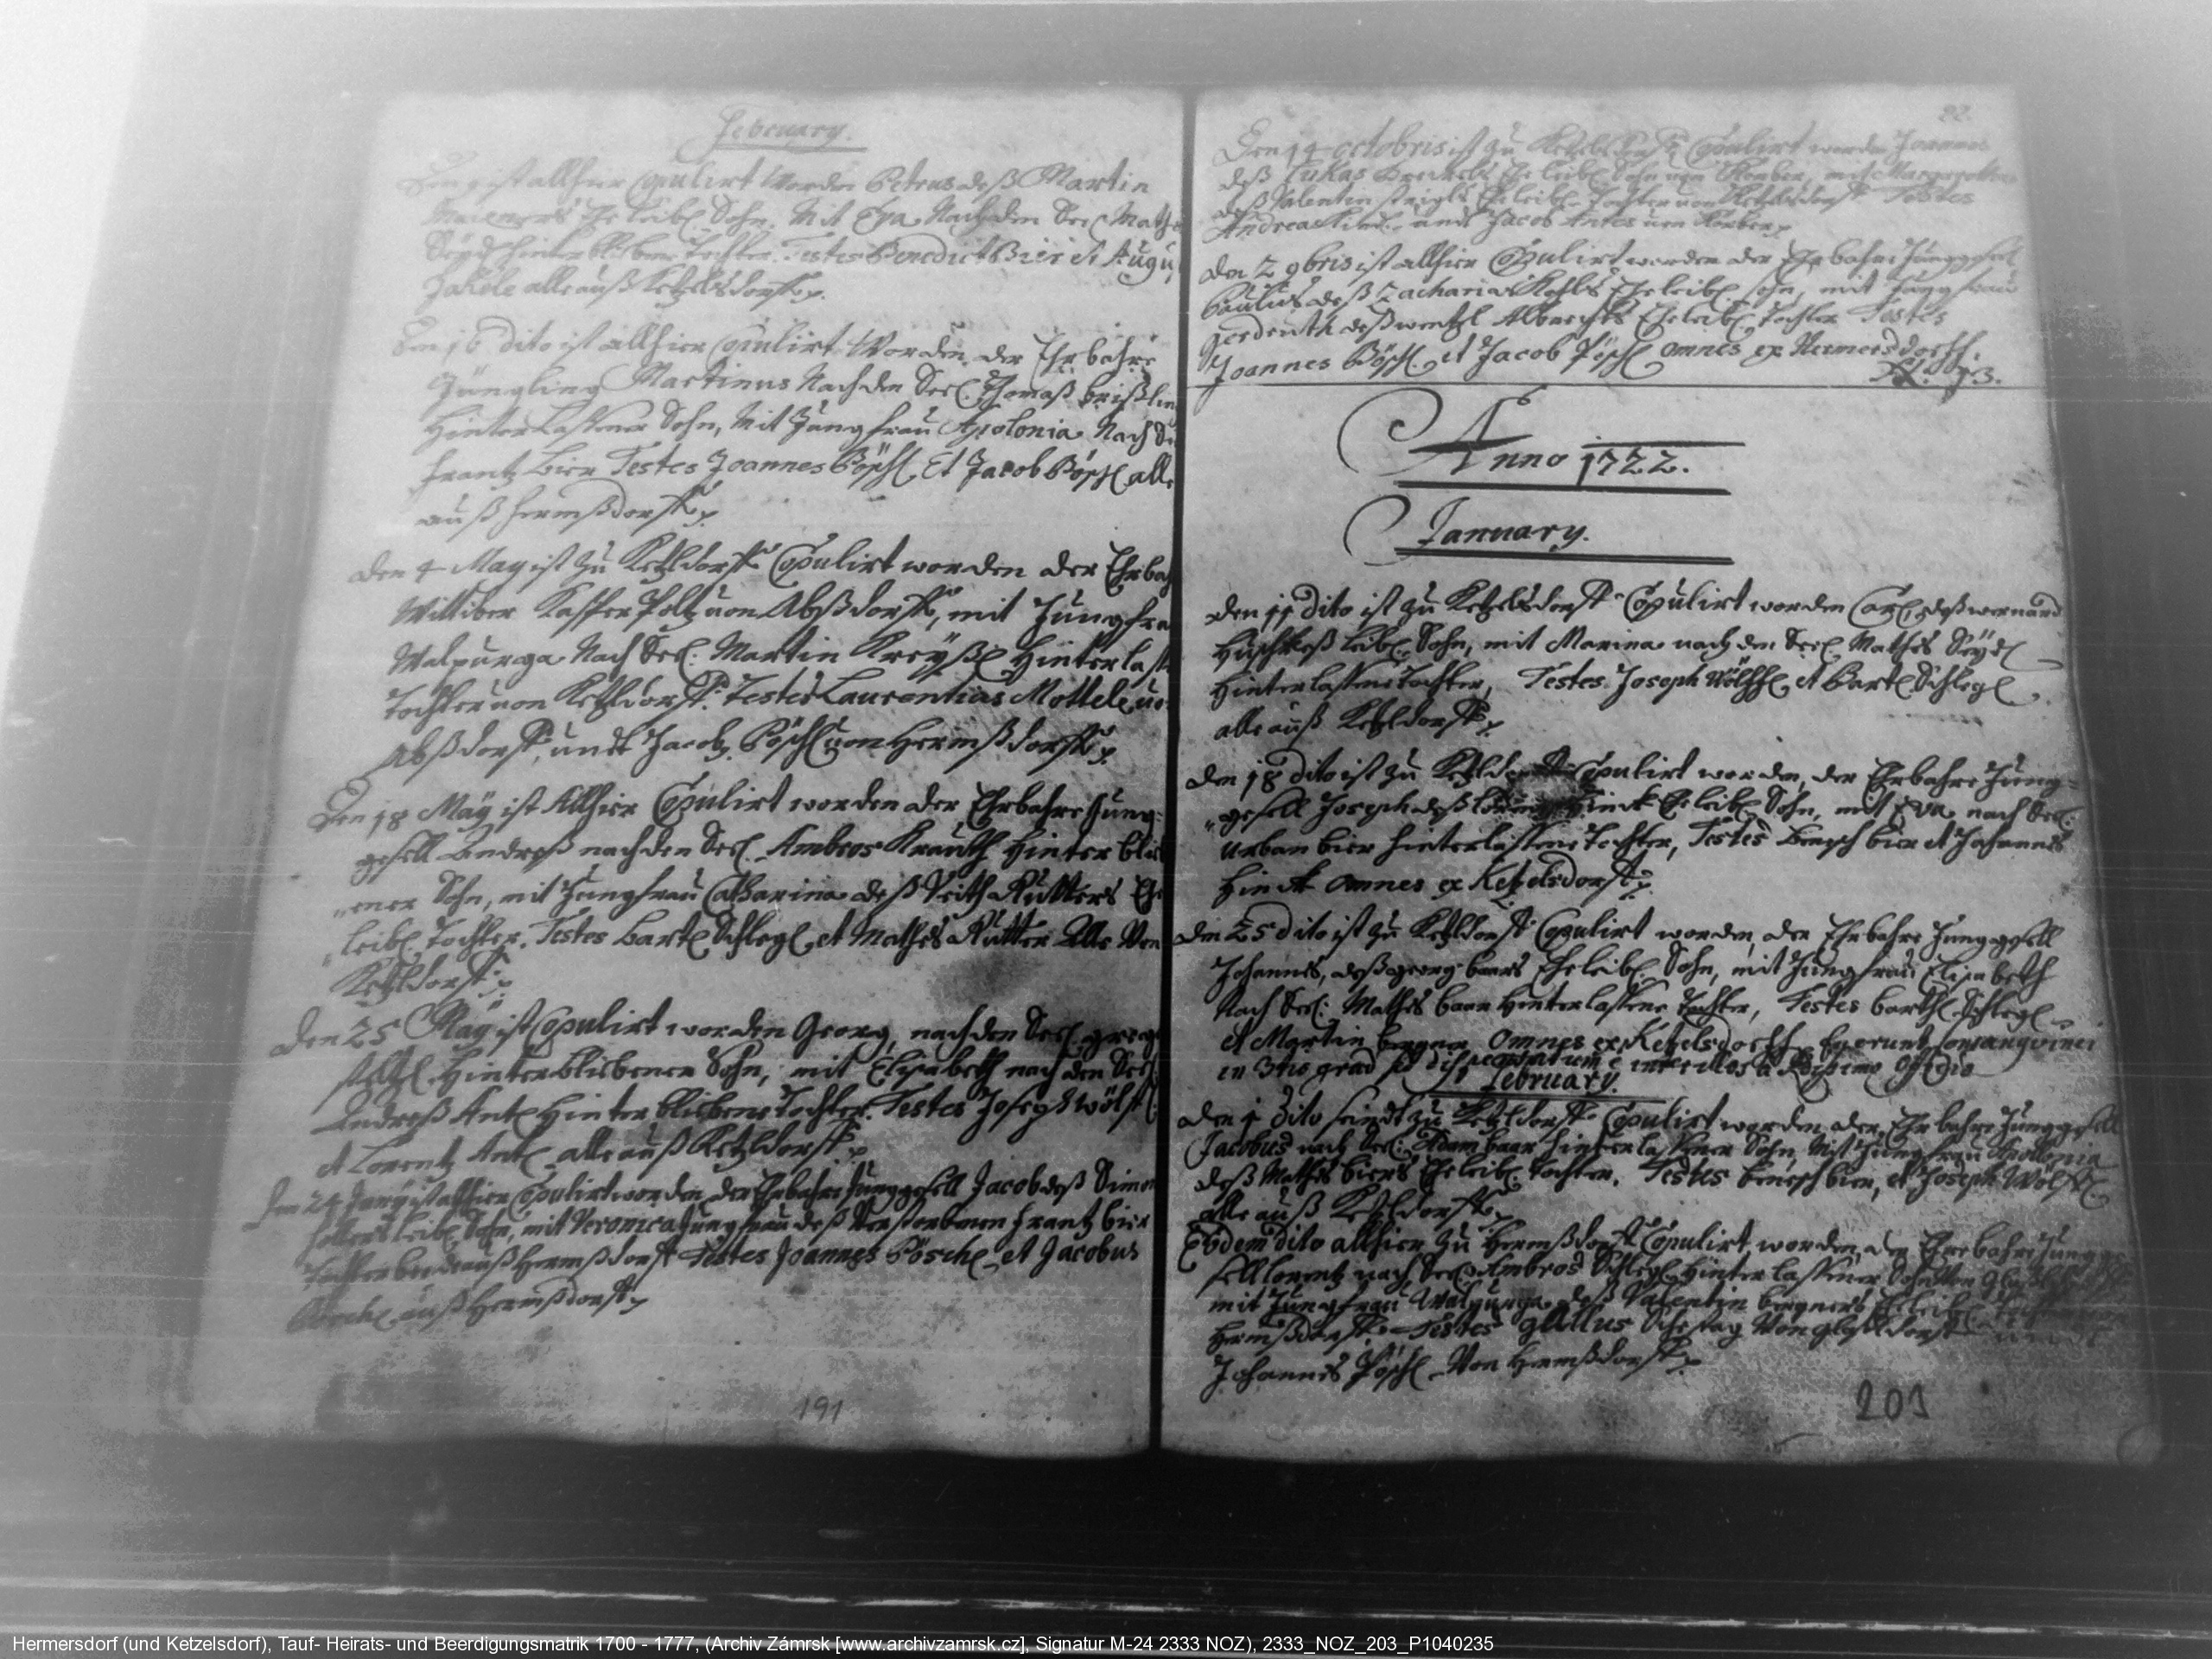 February.
ist allhier Copulirt worden Petrus deß Martin
Ehe leibl. Sohn, Mit Eva Nach den Seel. Mathe
Seydl hinterbliebene Tochter. Testes Benedict Bier et Augu
Jakele alle auß Ketzelsdorff.
Den 16 dito ist allhier Copulirt Worden der Ehrbahre
Jüngling Martinus Nach den Seel. Thomaß
Hinterlassener Sohn, Mit Jungfrau Apolonia Nach
Frantz Bier Testes Joannes Pöschl Et Jacob Pöschl alle
auß Hermßdorff.
den 4 May ist zu Ketzldorff Copulirt worden der Ehrbah
Wittiber Kasper Poltz von Abßdorff, mit Jungfra
Walpurga Nach Seel: Martin Kreyßl Hinterlaß
Tochter von Ketzldorff. Testes Laurentius Mottele
Abßdorff, undt Jacob Pöschl von Hermßdorff.
Den 18 May ist Allhier Copulirt worden der Ehrbahre Jung-
gesell Andreß nach den Seel. Ambros Krauth Hinterblieb
ener Sohn, mit Jungfrau Catharina deß Veith Rutters Ehe
leibl. Tochter. Testes Bartl Schlegl et Mathes Rutter Alle Von
Ketzldorff.
Den 25 May ist Copulirt worden Georg, nach den Seel. greg
Hinterbliebener Sohn, mit Elisabeth nach den Seel.
Andreß Antl Hinterbliebene Tochter. Testes Joseph Wölfl
et Lorentz Antl alle auß Ketzldorff.
Den 24 Juny ist allhier Copulirt worden der Ehrbahre Junggesell Jacob deß Simon
leibl. Sohn, mit Veronica Jungfrau deß Verstorbenen Frantz Bier
Tochter beede auß Hermßdorff Testes Joannes Pöschl et Jacobus
Pöschl auß Hermßdorff.
191
22
Den 14 octobris ist zu Ketzelsdorff Copulirt worden Joannes
deß Lukas Ehe leibl. Sohn von Körber, mit
deß Valentin Eheleibl. Tochter von Ketzelsdorff Testes
Andreas und Jacob Antes von Körber.
den 2 9bris ist allhier Copulirt worden der Ehrbahre Junggesel
Paulus deß Zacharias Kohls Eheleibl. Sohn, mit Jungfrau
Gerdruth deß Wentzl Albrechts Eheleibl. Tochter Testes
Joannes Pöschl et Jacob Pöschl omnes ex Hermersdorff.
13.
Anno 1722.
January.
den 11 dito ist zu Ketzelsdorff Copulirt worden Carl, deß
leibl. Sohn, mit Marina nach den Seel. Mathes Seydl
Hinterlassene Tochter, Testes Joseph Wölffl et Bartl Schlegl
alle auß Ketzldorff.
den 18 dito ist zu Copulirt worden, der Ehrbahre Jung-
gesell Joseph deß Hinck Eheleibl. Sohn, mit Eva nach Seel:
Urban Bier Hinterlassene Tochter, Testes Bensch Bier et Johannes
Hinck omnes ex Ketzelsdorff.
den 25 dito ist zu Ketzldorff Copulirt worden, der Ehrbahre Junggesell
Johannes, deß georg baars Eheleibl. Sohn, mit Jungfrau Elisabeth
Nach Seel: Mathes baar Hinterlassene Tochter, Testes Barthl Schlegl
et Martin omnes ex Ketzelsdorff. consanguinei
in 3tio grad sed dispensatum inter illos à officio
February.
den 1 dito seindt zu Ketzldorff Copulirt worden der Ehrbahre Junggesell
Jacobus nach Seel: Adam baar hinterlassener Sohn, Mit Jungfrau Apollonia
deß Mathes biers Eheleibl. tochter. Testes bensch bier, et Joseph Wölffl.
alle auß Ketzldorff.
Eodem dito allhier zu Hermßdorff Copulirt worden der Ehrbahre Jung
sell Lorentz nach Seel. Ambros Schlegl Hinterlassener Sohn Von
mit Jungfrau Walpurga deß Valentin bergners Eheleibl.
Hermßdorff. Testes gallus Von
Johannes Pöschl Von Hermßdorff.
203
Hermersdorf (und Ketzelsdorf), Tauf- Heirats- und Beerdigungsmatrik 1700 - 1777, (Archiv Zámrsk [www.archivzamrsk.cz], Signatur M-24 2333 NOZ), 2333_NOZ_203_P1040235